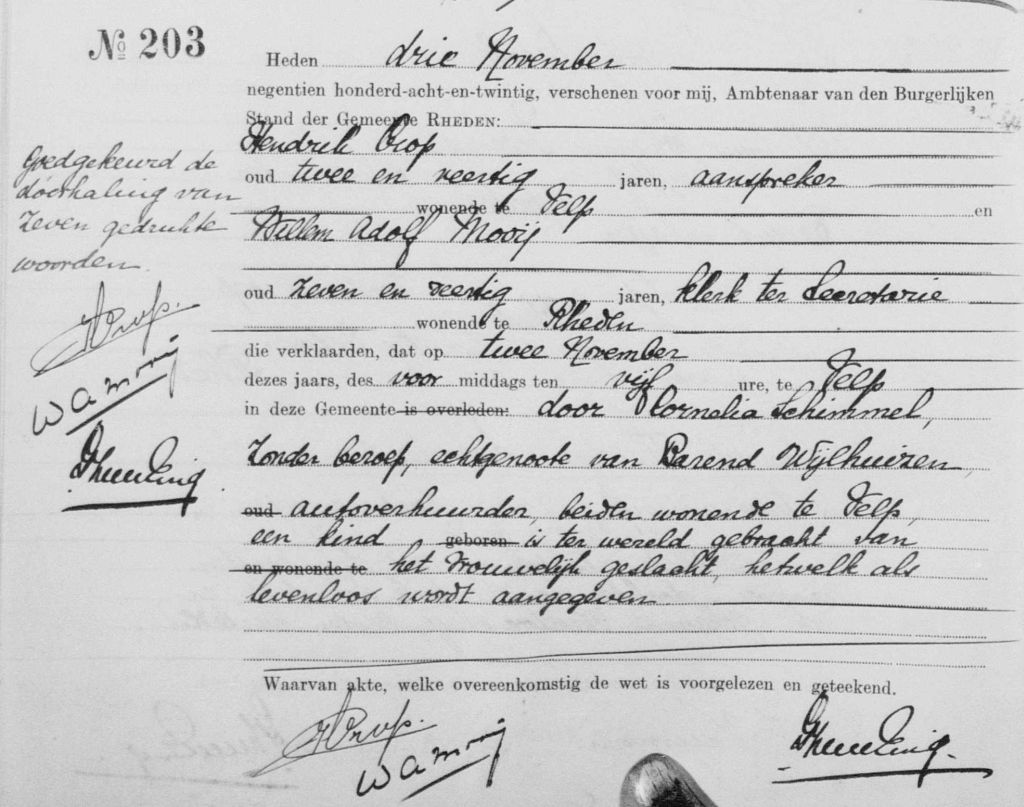 No 203
Heden drie November
negentien honderd-acht-en-twintig, verschenen voor mij, Ambtenaar van den Burgerlijken
Stand der Gemeente RHEDEN:
Hendrik Crop
oud twee en veertig jaren, aanspreker
wonende te Velp en
Willem Adolf Mooij
oud zeven en veertig jaren, klerk ter Secretarie
wonende te Rheden
die verklaarden, dat op twee November
dezes jaars, des voor middags ten vijf ure, te Velp
in deze Gemeente is overleden: door Cornelia Schimmel,
zonder beroep, echtgenoote van Barend Wijlhuizen,
oud autoverhuurder, beiden wonende te Velp,
een kind geboren is ter wereld gebracht van
en wonende te het vrouwelijk geslacht, hetwelk als
levenloos wordt aangegeven
Waarvan akte, welke overeenkomstig de wet is voorgelezen en geteekend.
HCrop.
W A Mooij
Goedgekeurd de
doorhaling van
zeven gedrukte
woorden.
HCrop.
W A Mooij